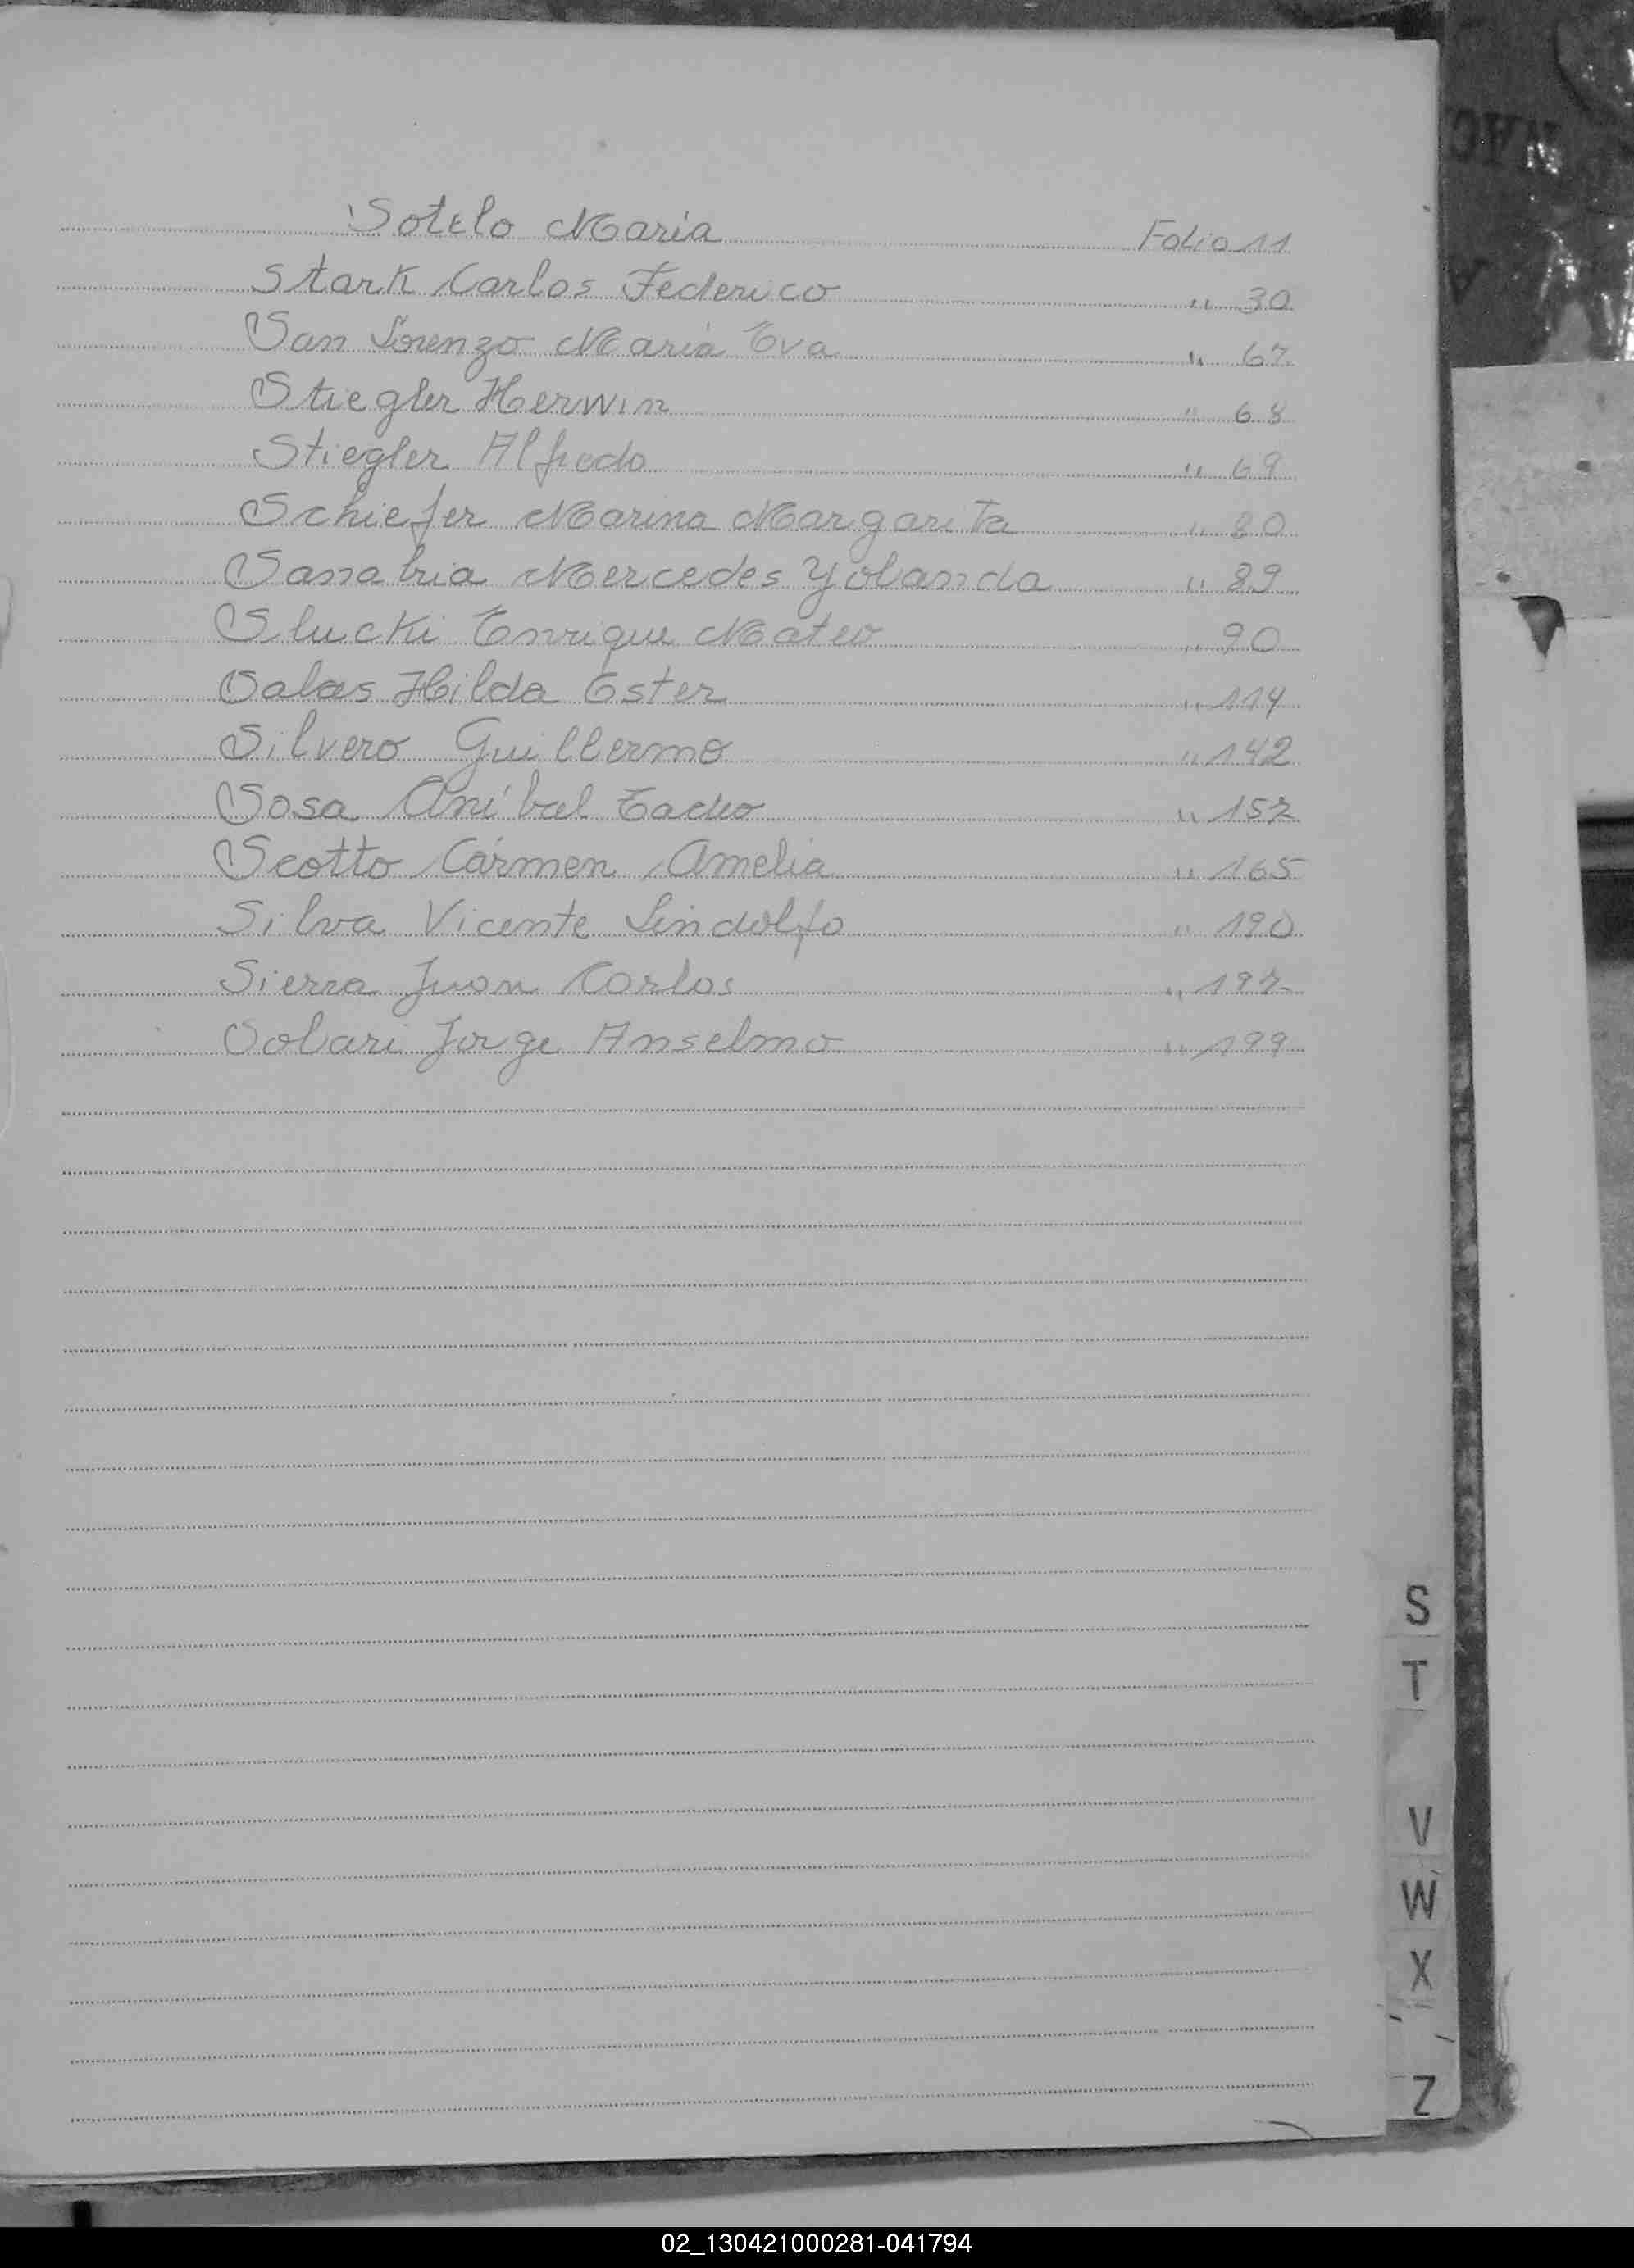 Sotelo María Folio 11
Stark Carlos Federico " 30
San Lorenzo María Eva " 67
Stiegler Herwin " 68
Stiegler Alfredo " 69
Schiefer Marina Margarita " 80
Sanabria Mercedes Yolanda " 89
Slucki Enrique Mateo " 90
Salas Hilda Ester " 114
Silvero Guillermo " 142
Sosa Aníbal " 157
Scotto Cármen Amelia " 165
Silva Vicente Lindolfo " 190
Sierra Juan Carlos " 197
Solari Jorge Anselmo " 199
S
T
V
W
X
Z
02_130421000281-041794